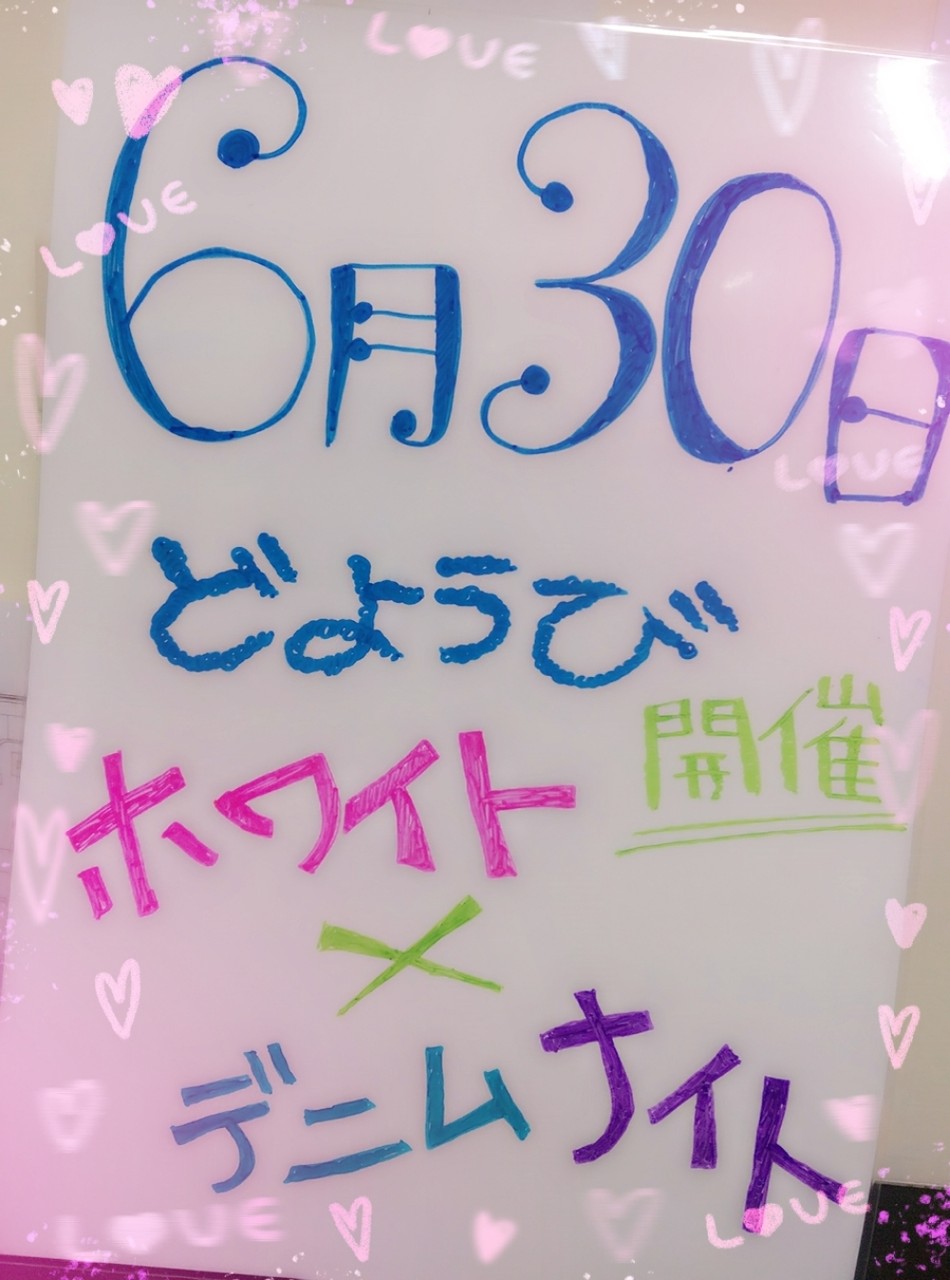 L♥VE
L♥VE
6月30日
LOVE
どようび
開催
ホワイト
×
デニムナイト
LOVE
L♥VE